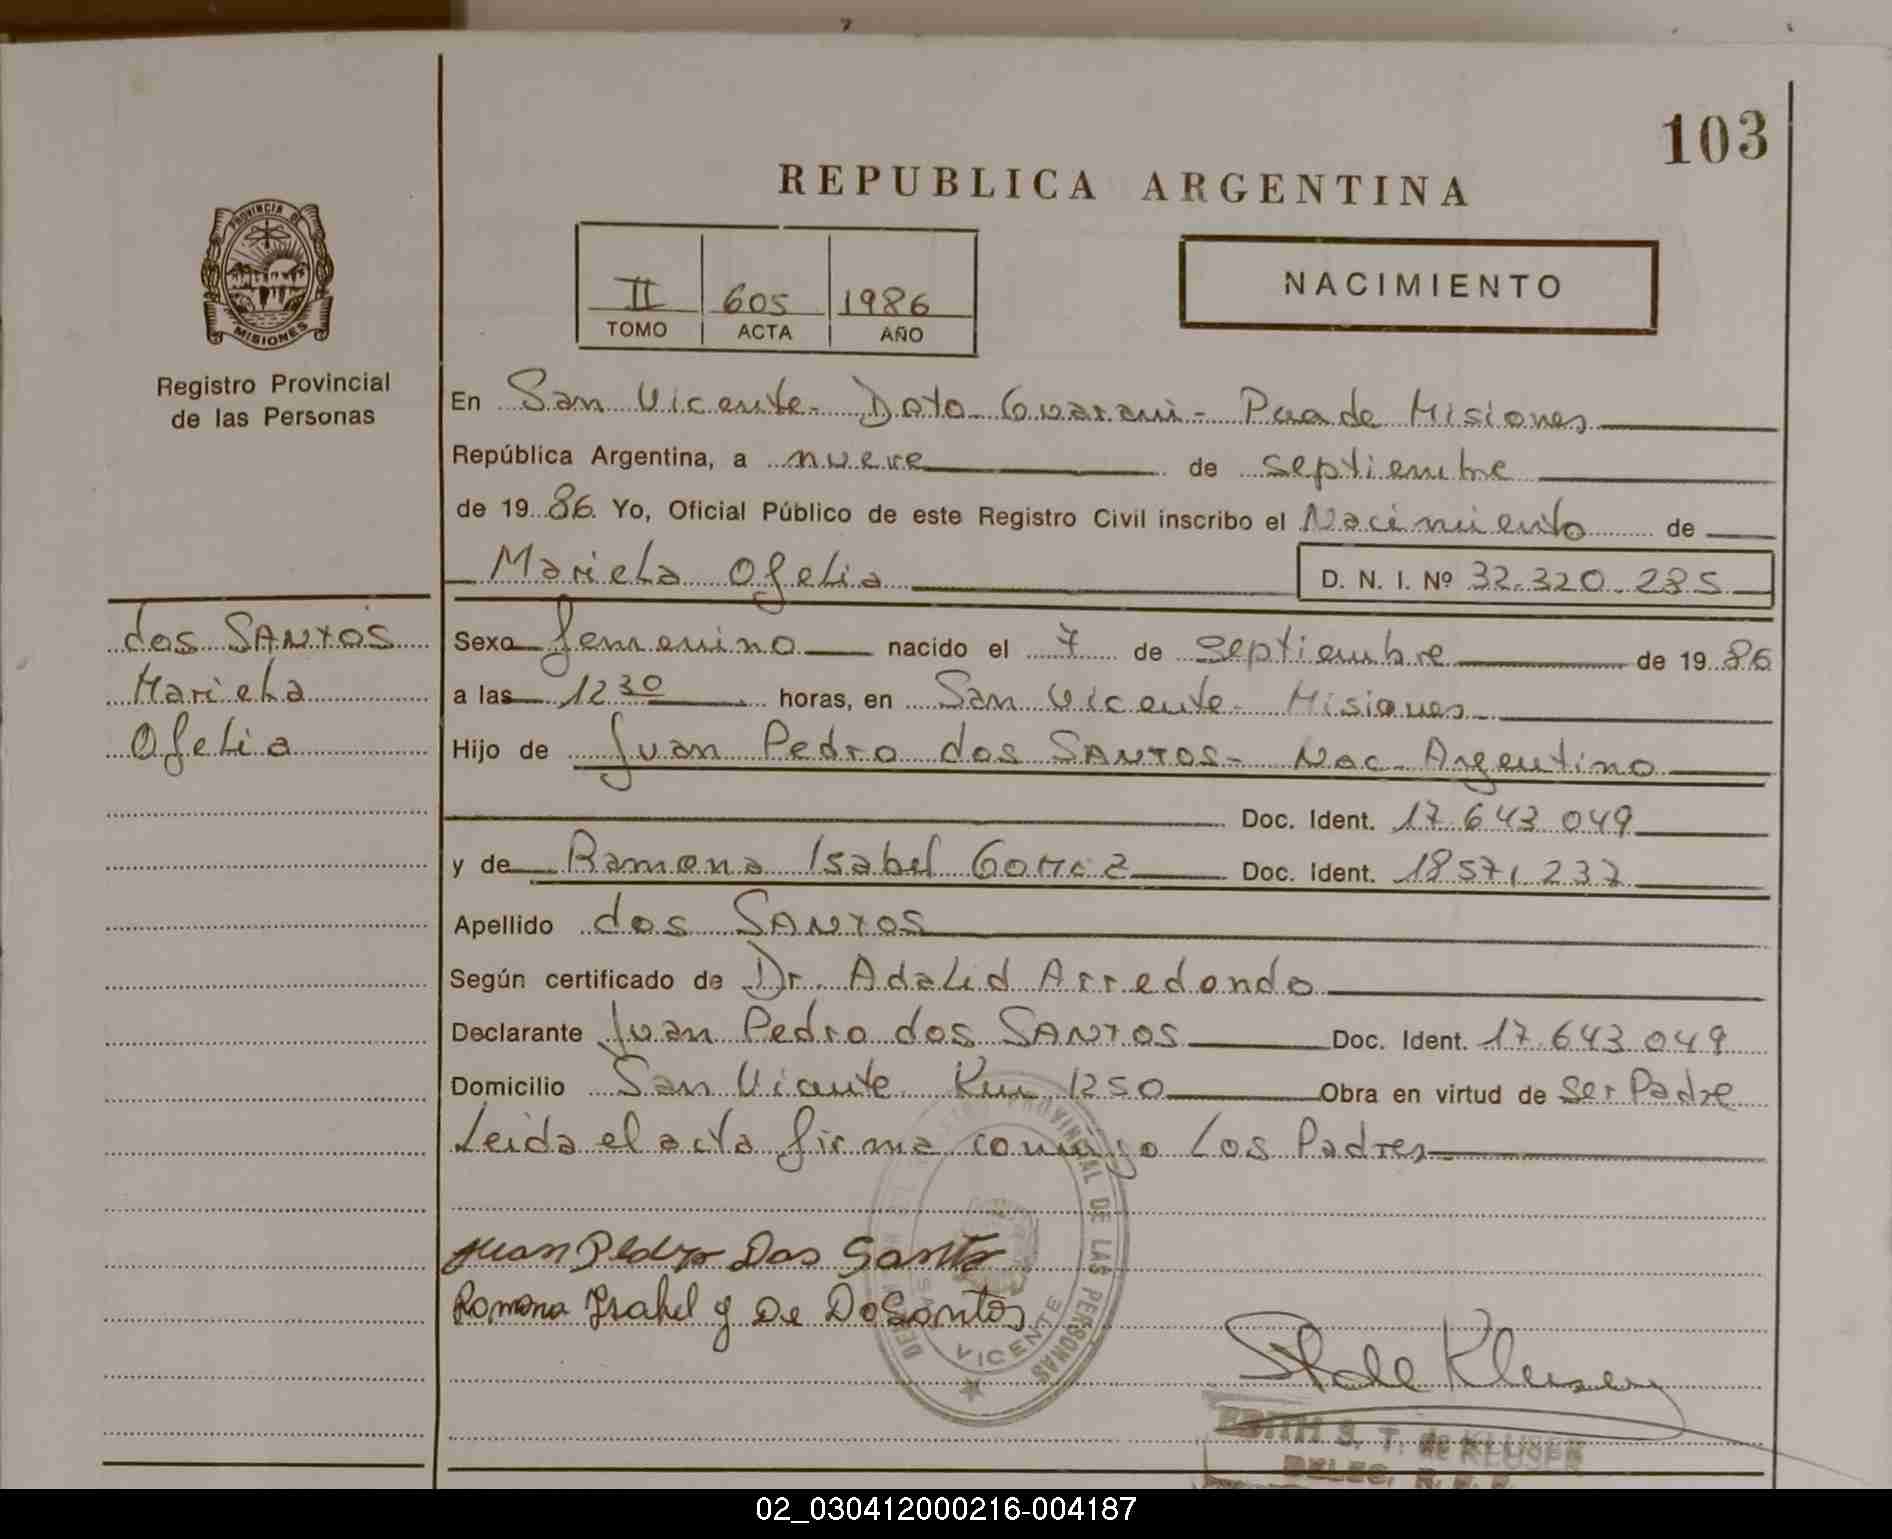 103
REPUBLICA ARGENTINA
PROVINCIA DE
MISIONES
Registro Provincial
de las Personas
II 605 1986
TOMO ACTA AÑO
NACIMIENTO
En San Vicente - Dpto Guarani - Pcia de Misiones
República Argentina, a nueve de septiembre
de 1986. Yo, Oficial Público de este Registro Civil inscribo el Nacimiento de
Mariela Ofelia
D. N. I. Nº 32.320.285
dos SANTOS
Mariela
Ofelia
Sexo femenino nacido el 7 de septiembre de 1986
a las 12 30 horas, en San Vicente - Misiones
Hijo de Juan Pedro dos SANTOS - Nac. Argentino
Doc. Ident. 17.643.049
y de Ramona Isabel Gomez Doc. Ident. 18571.237
Apellido dos SANTOS
Según certificado de Dr. Adalid Arredondo
Declarante Juan Pedro dos SANTOS Doc. Ident. 17.643.049
Domicilio San Vicente Km 1250 Obra en virtud de ser Padre
Leida el acta firma conmigo Los Padres
Juan Pedro Dos Santo
Romona Isabel g De DoSantos
PROVINCIAL DE LAS PERSONAS
VICENTE
S. T. de KLUSEN
DELEG. R. P. P.
02_030412000216-004187